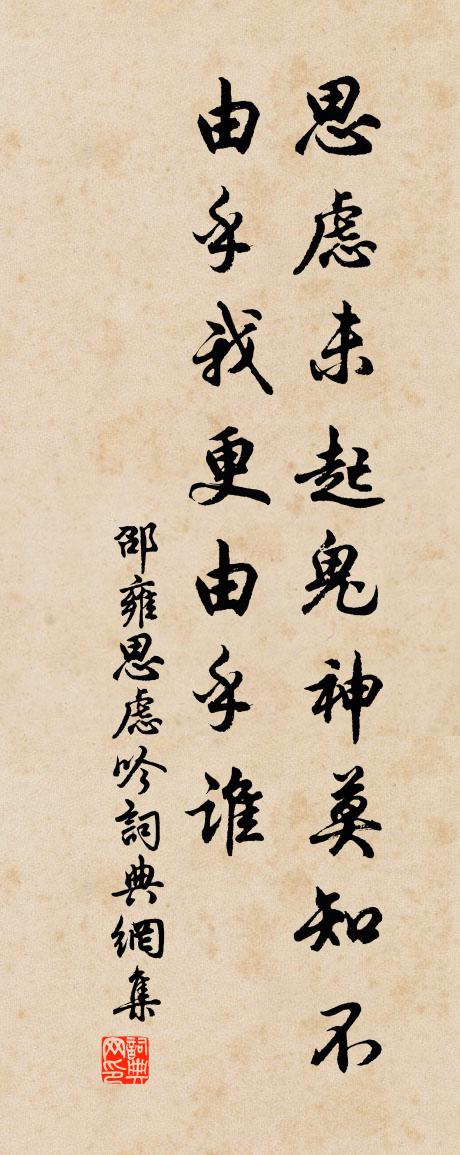 思慮未起鬼神莫知不
由乎我更由乎誰
邵雍思慮吟詞典網集
詞典网印